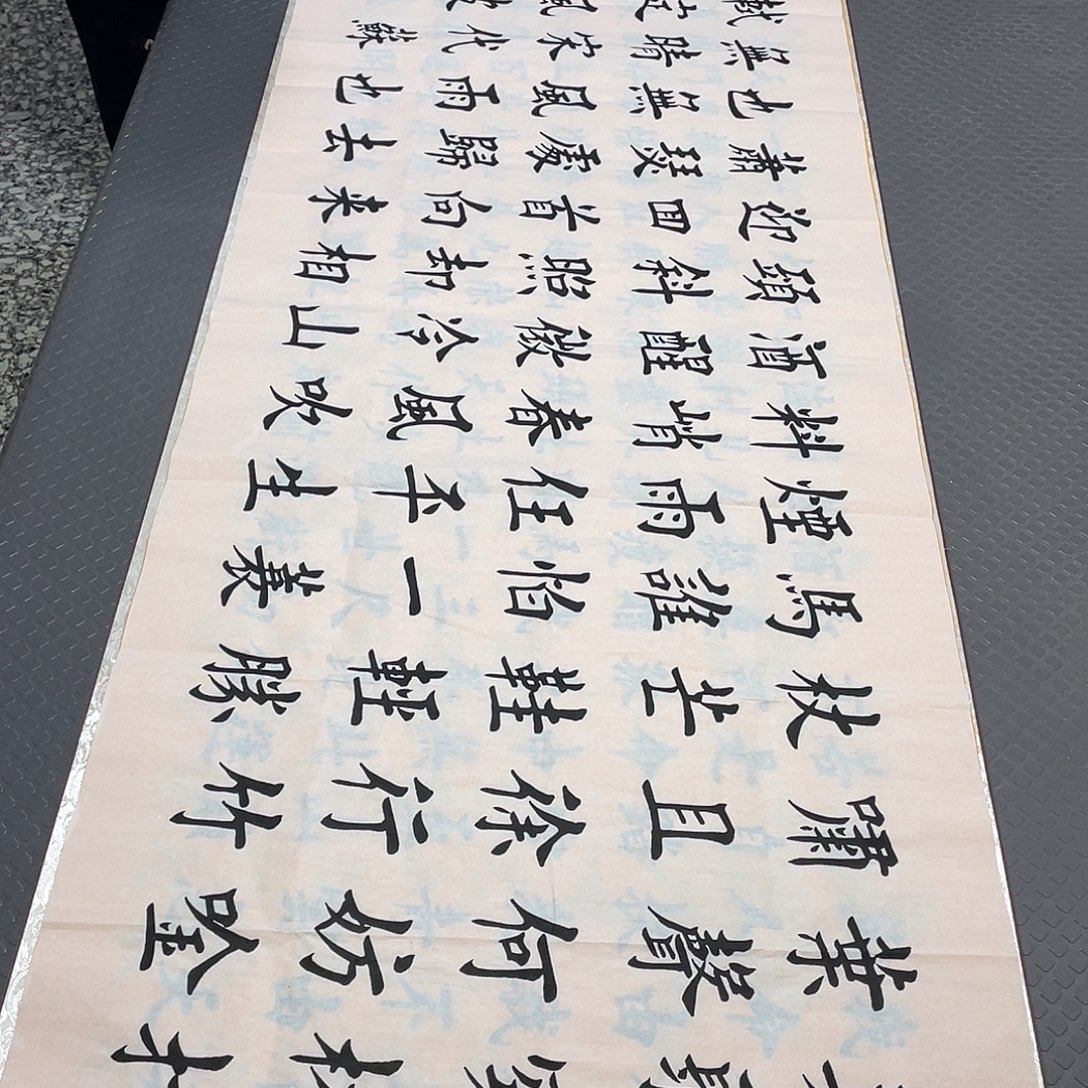 葉聲何妨唫
嘯且徐行竹
杖芒鞋輕勝
馬誰怕一蓑
煙雨任平生
料峭春風吹
酒醒微冷山
頭斜照却相
迎回首向来
蕭瑟處歸去
也無風雨也
無晴宋代蘇
軾定風波